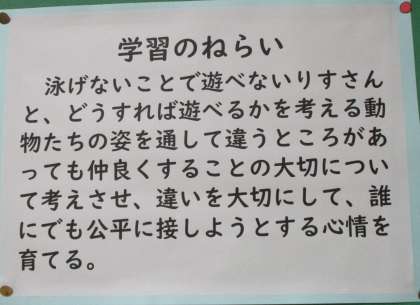 学習のねらい
泳げないことで遊べないりすさん
と、どうすれば遊べるかを考える動
物たちの姿を通して違うところがあ
っても仲良くすることの大切につい
て考えさせ、違いを大切にして、誰
にでも公平に接しようとする心情を
育てる。